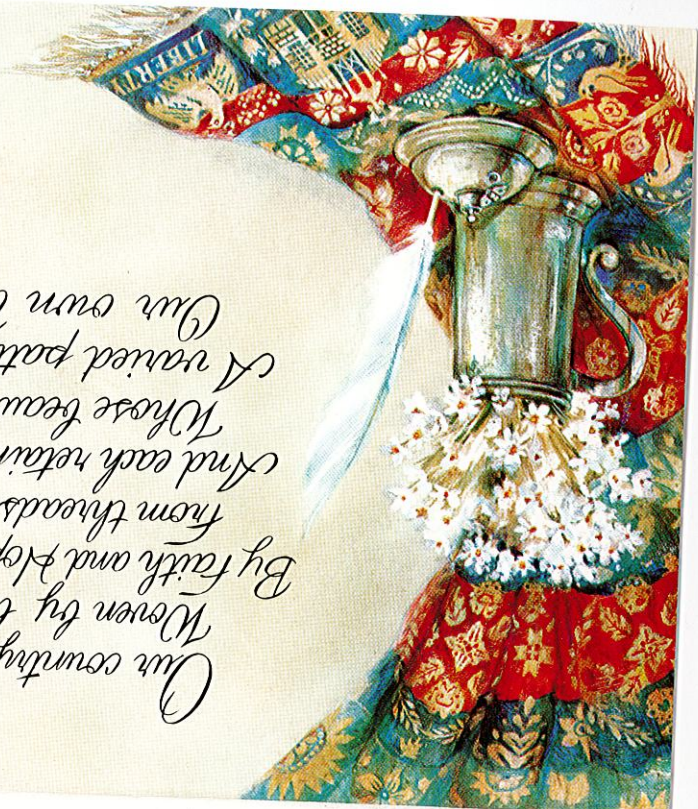 Our country
Woven by
By Faith and Hop
From threads
And each retain
Whose beau
A varied pat
Our own
LIBERTY